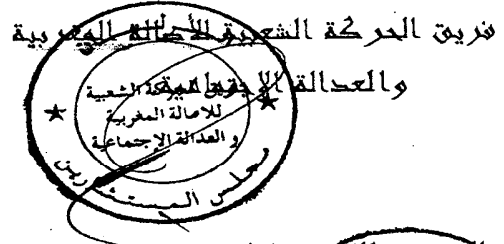 فريق الحركة الشعبية للأصالة المغربية
والعدالة الإجتماعية
الشعبية
للأصالة المغربية
و العدالة الإجتماعية
مجلس المستشارين